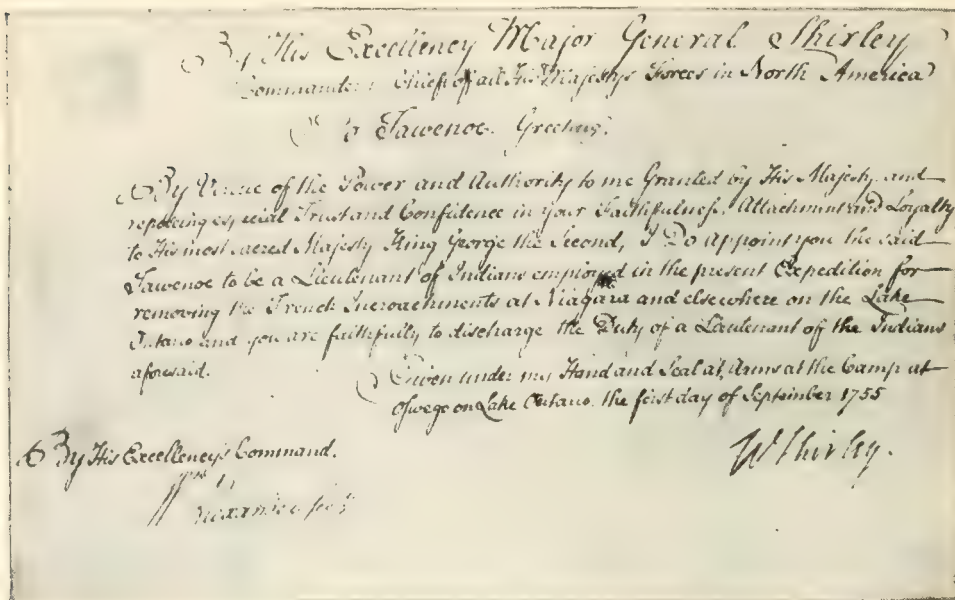 By His Excellency Major General Shirley
Commander Chief of all His Majestys Forces in North America
To Tawenoe Greeting.
By Virtue of the Power and Authority to me Granted by His Majesty and
reposing especial Trust and Confidence in your Faithfulness, Attachment and Loyalty
to His most sacred Majesty King George the Second, I Do appoint you the said
Tawenoe to be a Lieutenant of Indians employed in the present Expedition for
removing the French Incroachments at Niagara and elsewhere on the Lake
Ontario and you are faithfully to discharge the Duty of a Lieutenant of the Indians
aforesaid.
Given under my Hand and Seal at Arms at the Camp at
Oswego on Lake Ontario the first day of September 1755
W Shirley.
By His Excellency's Command.